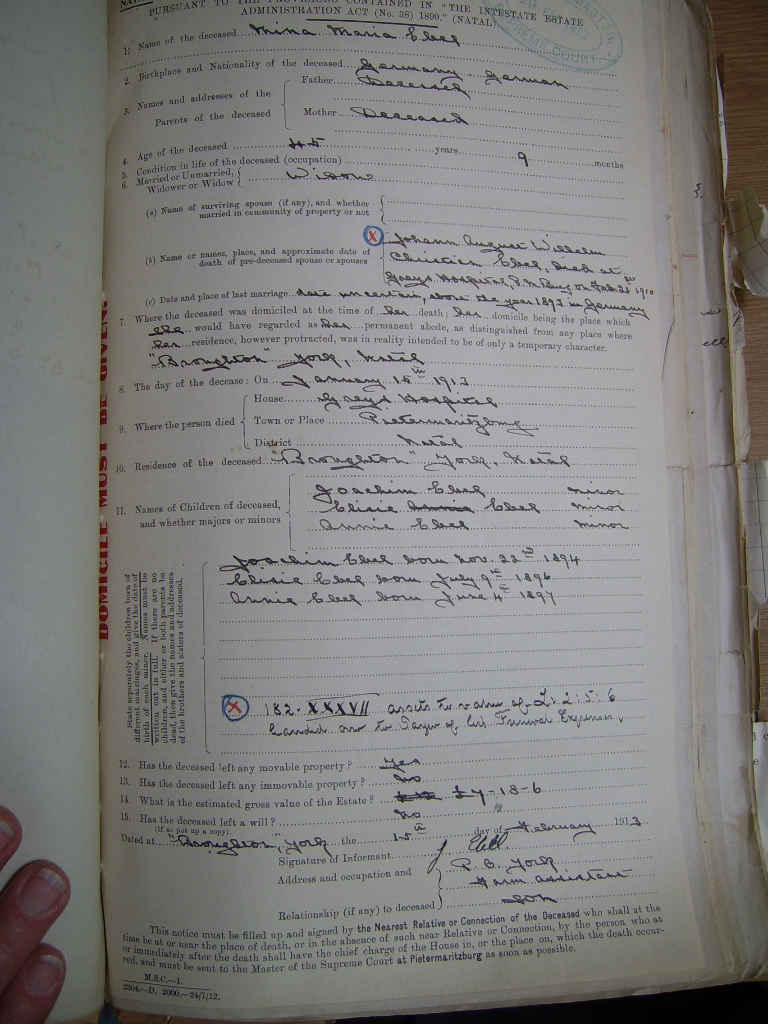 PURSUANT TO THE PROVISIONS CONTAINED IN "THE INTESTATE ESTATE
ADMINISTRATION ACT (No. 38) 1890." (NATAL)
1. Name of the deceased Mina Maria Ebel
2. Birthplace and Nationality of the deceased Germany German
3. Names and addresses of the Parents of the deceased
Father Deceased
Mother Deceased
4. Age of the deceased 45 years 9 months
5. Condition in life of the deceased (occupation)
6. Married or Unmarried, Widower or Widow Widow
(a) Name of surviving spouse (if any), and whether
married in community of property or not
(b) Name or names, place, and approximate date of
death of pre-deceased spouse or spouses
X Johann August Wilhelm
Christien Ebel, died at
Greys Hospital, P.M.Burg on Feb 21st 1910
(c) Date and place of last marriage date uncertain, about the year 1893 in Germany
7. Where the deceased was domiciled at the time of her death; her domicile being the place which
she would have regarded as her permanent abode, as distinguished from any place where
her residence, however protracted, was in reality intended to be only of a temporary character.
"Broughton" York, Natal
8. The day of the decease: On January 15th 1913
9. Where the person died
House Greys Hospital
Town or Place Pietermaritzburg
District Natal
10. Residence of the deceased "Broughton" York, Natal
11. Names of Children of deceased,
and whether majors or minors
Joachim Ebel minor
Elisie Ebel minor
Annie Ebel minor
Joachim Ebel born Nov. 22nd 1894
Elisie Ebel born July 9th 1896
Annie Ebel born June 4th 1897
State separately the children born of
different marriages, and give the date of
birth of each minor. Names must be
written out in full. If there are no
children, and either or both parents be
dead, then give the names and addresses
of the brothers and sisters of deceased.
DOMICILE MUST BE GIVEN.
X 182-XXXVII assets to value of £1:2:5:6
handed over to Payer of his Funeral Expenses,
12. Has the deceased left any movable property? Yes
13. Has the deceased left any immovable property? No
14. What is the estimated gross value of the Estate? £7-18-6
15. Has the deceased left a will? No
(If so put up a copy).
Dated at "Broughton", York the 15th day of February 1913
Signature of Informant J Ebel
Address and occupation and P.O. York
Farm assistant
Relationship (if any) to deceased Son
This notice must be filled up and signed by the Nearest Relative or Connection of the Deceased who shall at the
time be at or near the place of death, or in the absence of such near Relative or Connection, by the person who at
or immediately after the death shall have the chief charge of the House in, or the place on, which the death occur-
red, and must be sent to the Master of the Supreme Court at Pietermaritzburg as soon as possible.
M.S.C.—1.
2204.—D. 2000.—24/7/12.